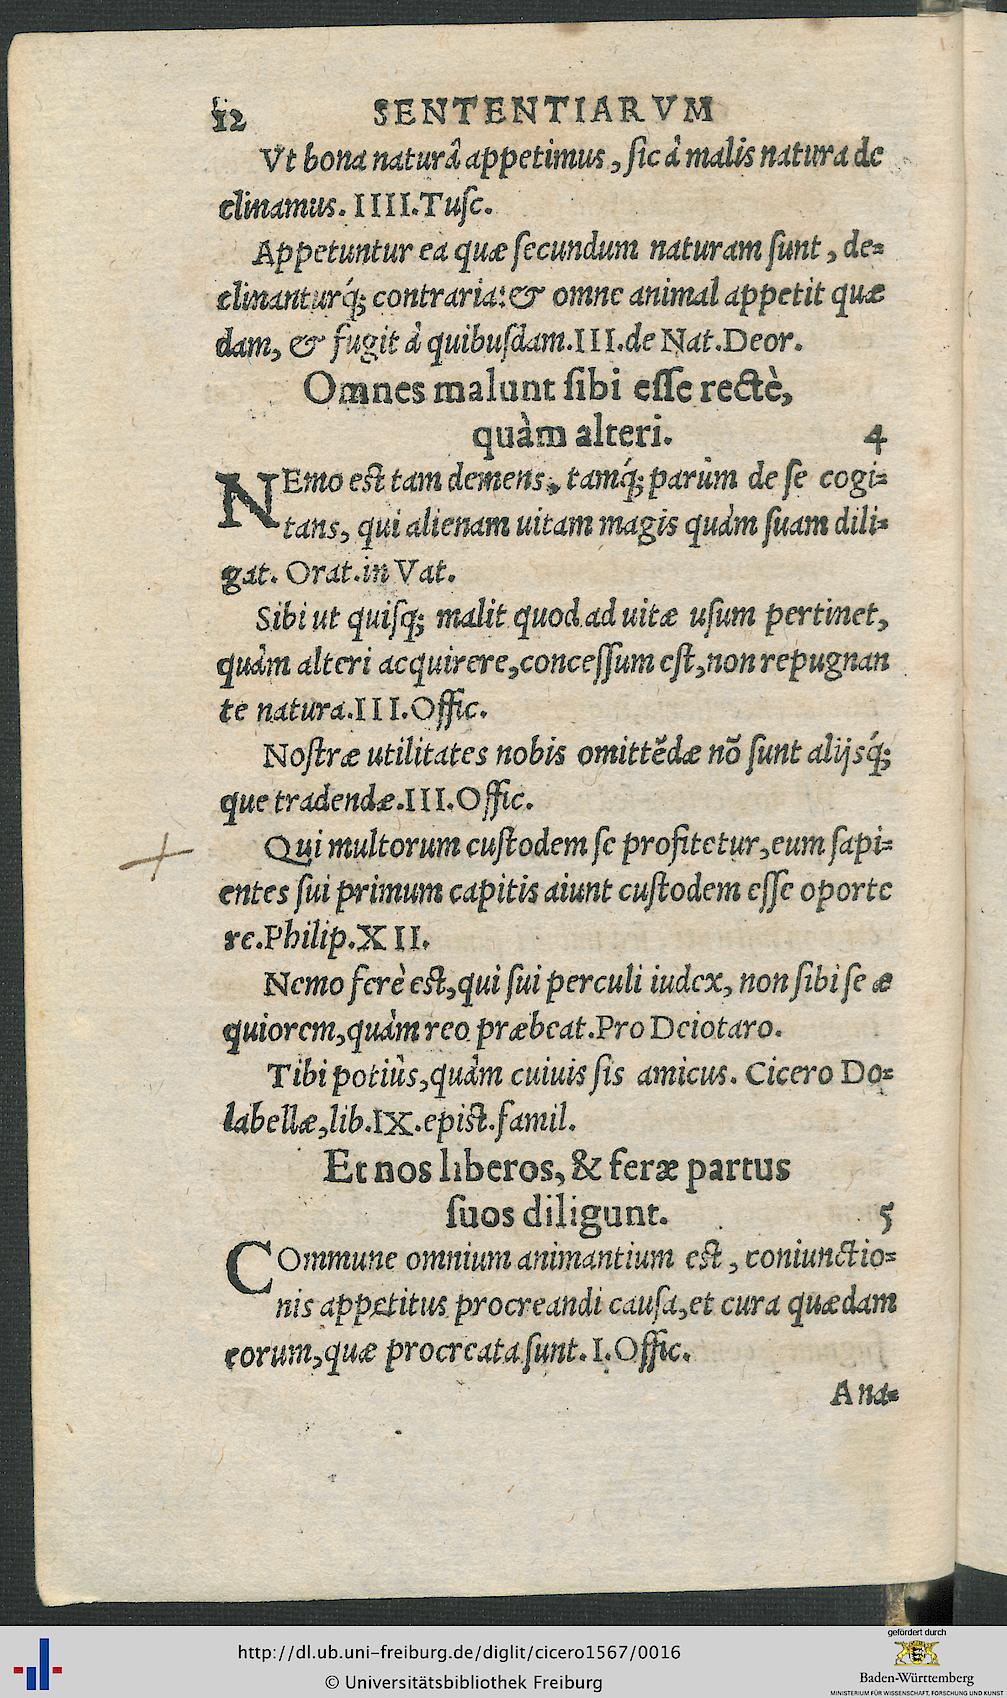 12 SENTENTIARVM
Vt bona naturâ appetimus, sic à malis natura de
clinamus. IIII.Tusc.
Appetuntur ea quæ secundum naturam sunt, de=
clinanturq́; contraria: & omne animal appetit quæ
dam, & fugit à quibusdam.III.de Nat.Deor.
Omnes malunt sibi esse rectè,
quàm alteri. 4
NEmo est tam demens, tamq́; parùm de se cogi=
tans, qui alienam uitam magis quàm suam dili=
gat. Orat.in Vat.
Sibi ut quisq; malit quod ad uitæ usum pertinet,
quàm alteri acquirere, concessum est, non repugnan
te natura.III.Offic.
Nostræ utilitates nobis omittẽdæ nõ sunt alijsq́;
que tradendæ.III.Offic.
Qui multorum custodem se profitetur, eum sapi=
entes sui primum capitis aiunt custodem esse oporte
re.Philip.XII.
Nemo ferè est, qui sui perculi iudex, non sibi se æ
quiorem, quàm reo præbeat.Pro Deiotaro.
Tibi potiùs, quàm cuiuis sis amicus. Cicero Do=
labellæ, lib.IX.epist.famil.
Et nos liberos, & feræ partus
suos diligunt. 5
COmmune omnium animantium est, coniunctio=
nis appetitus procreandi causa, et cura quædam
eorum, quæ procreata sunt. I.Offic.
Ana=
http://dl.ub.uni-freiburg.de/diglit/cicero1567/0016
© Universitätsbibliothek Freiburg
gefördert durch
Baden-Württemberg
MINISTERIUM FÜR WISSENSCHAFT, FORSCHUNG UND KUNST